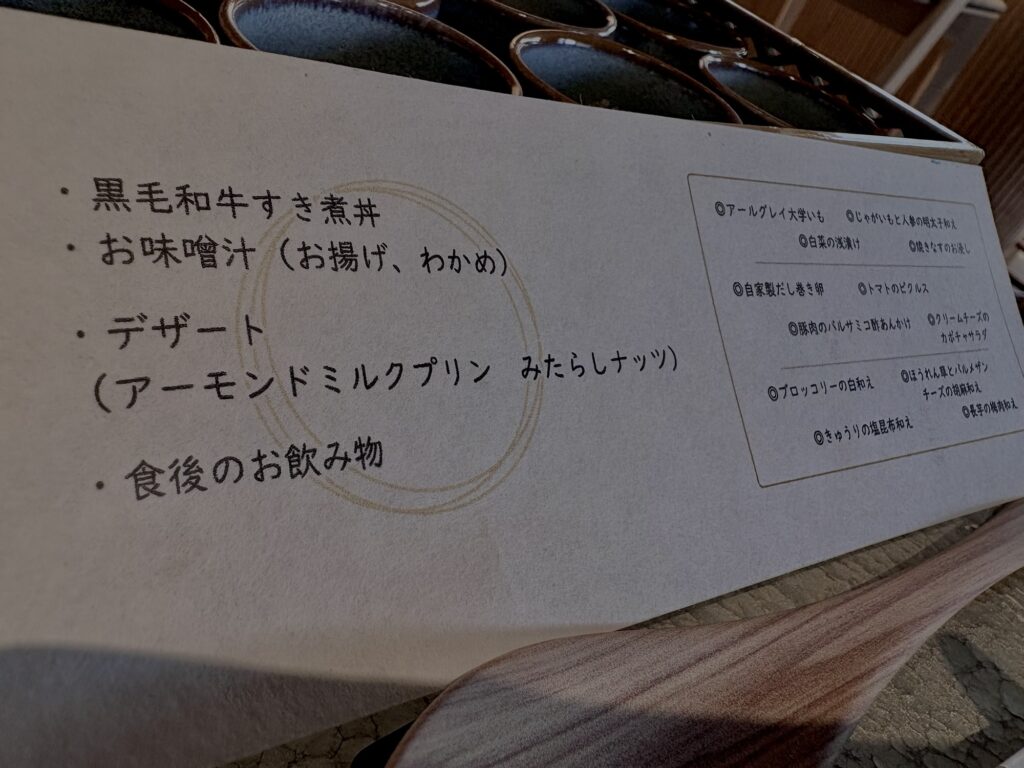 ・黒毛和牛すき煮丼
・お味噌汁（お揚げ、わかめ）
・デザート
（アーモンドミルクプリン　みたらしナッツ）
・食後のお飲み物
◎アールグレイ大学いも　◎じゃがいもと人参の明太子和え
◎白菜の浅漬け　◎焼きなすのお浸し
◎自家製だし巻き卵　◎トマトのピクルス
◎豚肉のバルサミコ酢あんかけ　◎クリームチーズの
カボチャサラダ
◎ブロッコリーの白和え　◎ほうれん草とパルメザン
チーズの胡麻和え
◎きゅうりの塩昆布和え　◎長芋の梅肉和え